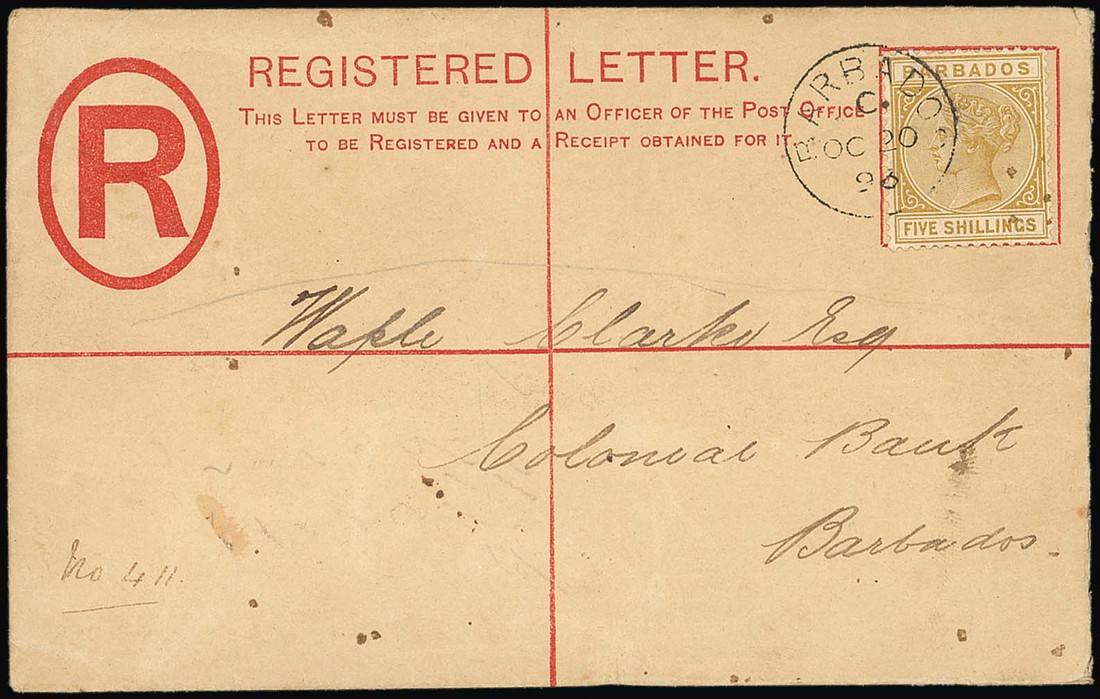 REGISTERED LETTER.
THIS LETTER MUST BE GIVEN TO AN OFFICER OF THE POST OFFICE
TO BE REGISTERED AND A RECEIPT OBTAINED FOR IT.
R
BARBADOS
C.
OC 20
96
BARBADOS
FIVE SHILLINGS
Waple Clarke Esq
Colonial Bank
Barbados.
No 411.